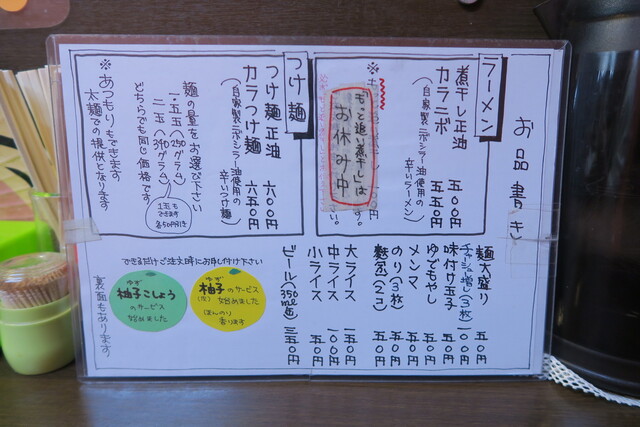 お品書き
ラーメン
煮干し正油 五〇〇円
カラニボ 五五〇円
(自家製ニボシラー油使用の
辛いラーメン)
もっと追い煮干しは
お休み中
つけ麺
つけ麺正油 六〇〇円
カラつけ麺 六五〇円
(自家製ニボシラー油使用の
辛いつけ麺)
麺の量をお選び下さい
一・五玉(250グラム)
二玉(340グラム)
どちらでも同じ価格です
1玉も
できます
各50円引き
※あつもりもできます
太麺での提供となります
麺大盛り 五〇円
チャーシュー増し(3枚) 一〇〇円
味付け玉子 五〇円
ゆでもやし 五〇円
メンマ 五〇円
のり(3枚) 五〇円
麩(2コ) 五〇円
大ライス 一五〇円
中ライス 一〇〇円
小ライス 五〇円
ビール(350ml缶) 三五〇円
できるだけご注文時にお申し付け下さい
ゆず
柚子のサービス
始めました
ほんのり
香ります
ゆず
柚子こしょう
のサービス
始めました
裏面もあります